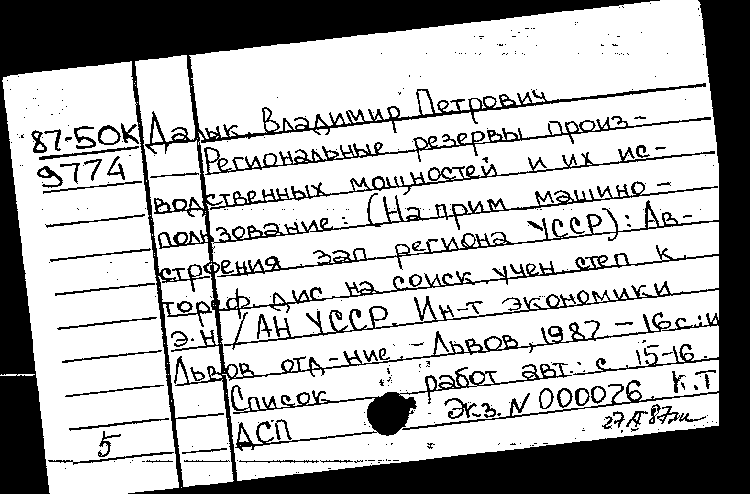 87-5OK Далык, Владимир Петрович
9774 Региональные резервы произ-
водственных мощностей и их ис-
пользование: (На прим машино-
строения зап региона УССР): Ав-
тореф. дис на соиск. учен. степ к.
э.н / АН УССР. Ин-т экономики
Львов отд-ние. - Львов, 1987 - 16 с.; и
Список работ авт.: с 15-16.
ДСП Экз. N 000076. К.Т
5